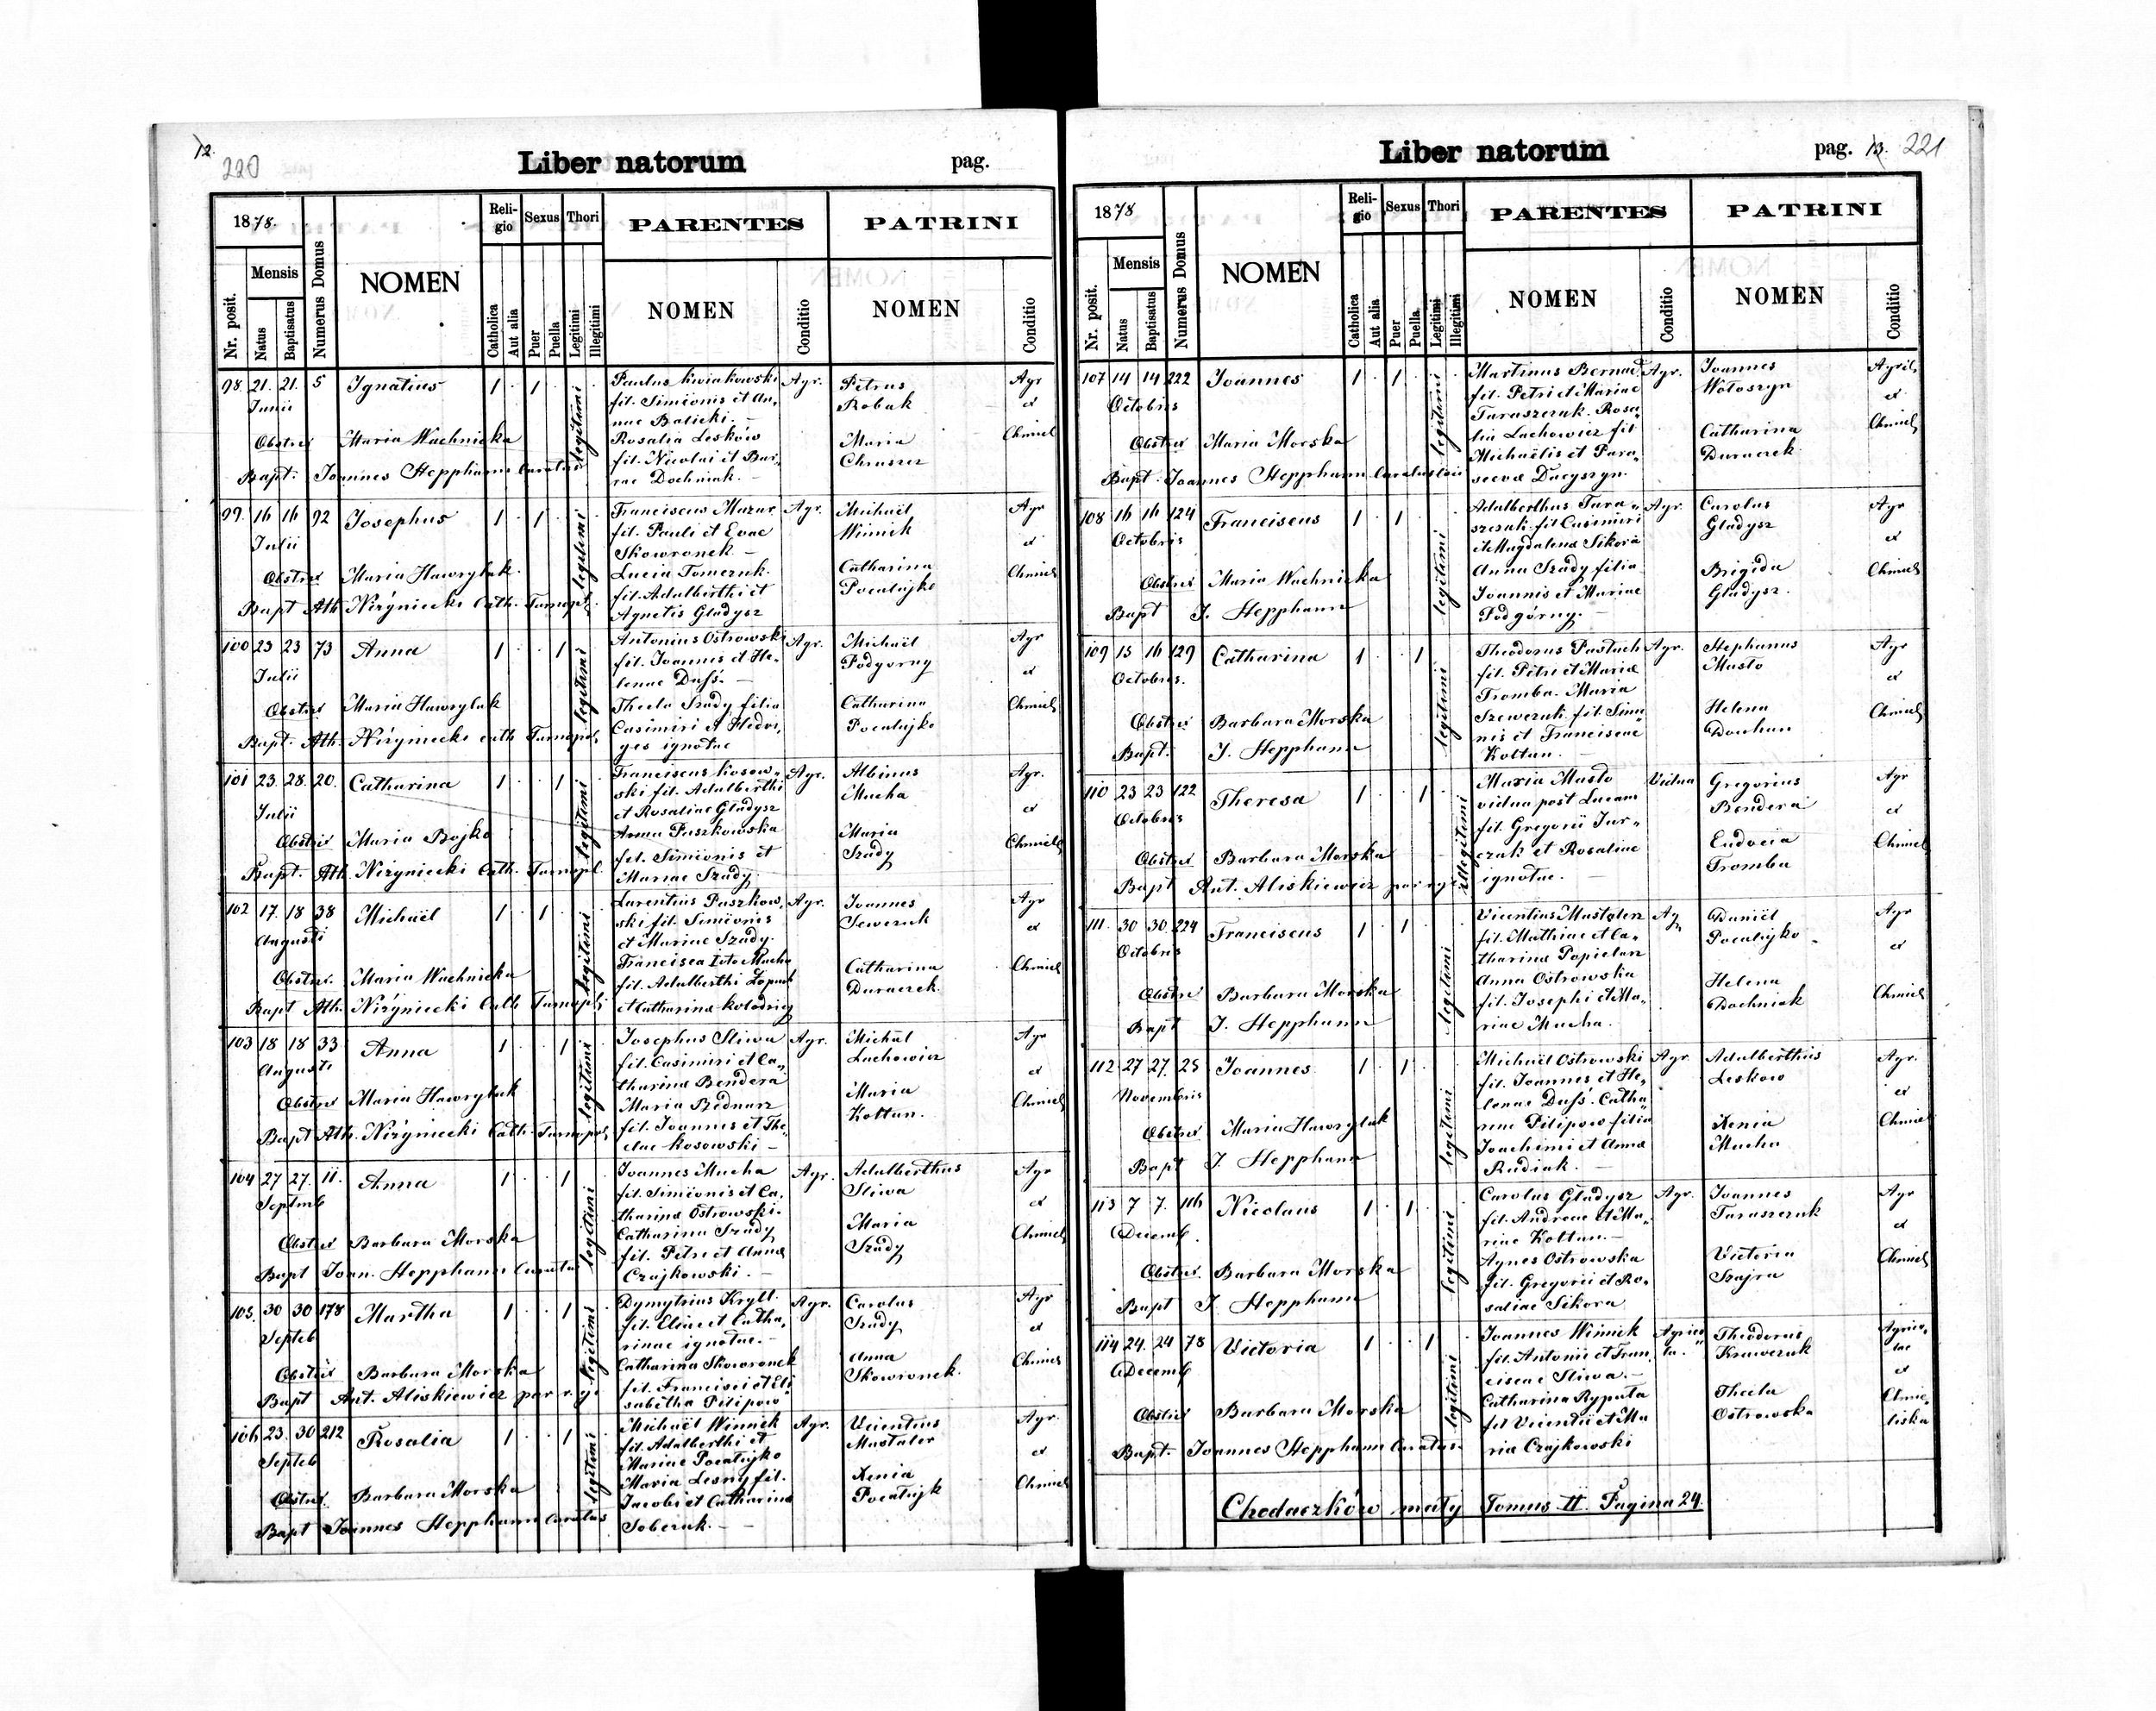 12.
220
Liber natorum pag.
1878.
Nr. posit.
Mensis
Natus
Baptisatus
Numerus Domus
NOMEN
Religio
Catholica
Aut alia
Sexus
Puer
Puella
Thori
Legitimi
Illegitimi
PARENTES
NOMEN
Conditio
PATRINI
NOMEN
Conditio
98. 21. 21. 5 Ignatius 1 1 legitimi
Junii
Obstrix Maria Wachnicka
Bapt. Joannes Hepphann Curatus
Paulus Kwiakowski Agr.
fil. Simionis et An„
nae Balicki.
Rosalia Leskow
fil. Nicolai et Bar„
rae Dochniak.
Petrus Agr
Robak et
Maria Chmiel
Chruszcz
99. 16 16 92 Josephus 1 1 legitimi
Julii
Obstrix Maria Hawrylak.
Bapt Ath. Niżyniecki Cath. Tarnopl.
Franciscus Mazur Agr.
fil. Pauli et Evae
Skowronek
Lucia Tomczuk.
fil. Adalberthi et
Agnetis Gladysz
Michaël Agr
Winnik et
Catharina Chmiel
Pocałujko
100 23 23 73 Anna 1 1 legitimi
Julii
Obstrix Maria Hawrylak
Bapt. Ath. Niżyniecki Cath Tarnopol,
Antonius Ostrowski Agr.
fil. Joannis et He„
lenae Dufs.
Thecla Szady filia
Casimiri et Hedvi„
ges ignotae
Michaël Agr
Podgorny et
Catharina Chmiel
Pocałujko
101 23. 28. 20. Catharina 1 1 legitimi
Julii
Obstrix Maria Bojko
Bapt. Ath. Niżyniecki Cath. Tarnopl.
Franciscus Kosow„ Agr.
ski fil. Adalberthi
et Rosaliae Gladysz
Anna Paszkowska
fil. Simionis et
Mariae Szady.
Albinus Agr.
Mucha et
Maria Chmiel
Szady
102 17. 18 38 Michaël 1 1 legitimi
Augusti
Obstrix. Maria Wachnicka
Bapt Ath. Niżyniecki Cath Tarnopl,
Laurentius Paszkow„ Agr.
ski fil. Simionis
et Mariae Szady.
Francisca Ivto Mucha
fil. Adalberthi
et Catharina Kolodnicy
Joannes Agr
Sewczuk et
Catharina Chmiel
Daraczek.
103 18 18 33 Anna 1 1 legitimi
Augusti
Obstrix Maria Hawrylak
Bapt Ath. Niżyniecki Cath. Tarnopol,
Josephus Sliwa Agr.
fil. Casimiri et Ca„
tharina Bendera
Maria Bednarz
fil. Joannis et The„
clae Kosowski
Michäl Agr
Lachowicz et
Maria Chmiel
Kołtan.
104 27 27. 11. Anna 1 1 legitimi
Septmb
Obstrix Barbara Morska
Bapt Joan. Hepphann Curatus
Joannes Mucha Agr.
fil. Simionis et Ca„
tharina Ostrowski.
Catharina Szady
fil. Petri et Anna
Czajkowski.
Adalberthus Agr
Sliwa et
Maria Chmiel
Szady
105. 30 30 178 Martha 1 1 legitimi
Septeb
Obstrix Barbara Morska
Bapt Ant. Aliskiewicz par r. g.
Dymytrius Kryll. Agr.
fil. Eliae et Catha„
rinae ignotae.
Catharina Skowronek
fil. Francisci et Eli„
sabetha Pilipow
Carolus Agr
Szady et
Anna Chmiel
Skowronek.
106 23. 30 212 Rosalia 1 1 legitimi
Septeb
Obstrix. Barbara Morska
Bapt Joannes Hepphann Curatus
Michaël Winnik Agr.
fil. Adalberthi et
Mariae Pocałujko
Maria Lesny fil.
Jacobi et Catharina
Soberuk.
Vicentius Agr.
Mastaler et
Xenia Chmiel
Pocałujk
Liber natorum pag. 13. 221
1878
Nr. posit.
Mensis
Natus
Baptisatus
Numerus Domus
NOMEN
Religio
Catholica
Aut alia
Sexus
Puer
Puella
Thori
Legitimi
Illegitimi
PARENTES
NOMEN
Conditio
PATRINI
NOMEN
Conditio
107 14 14 222 Joannes 1 1 legitimi
Octobris
Obstrix Maria Morska
Bapt. Joannes Hepphann Curatus loci
Martinus Bernad Agr.
fil. Petri et Mariae
Taraszczuk. Rosa„
lia Lachowicz fil
Michaëlis et Para„
scevae Dacyszyn.
Joannes Agril,
Wołoszyn et
Catharina Chmiel,
Daraczek
108 16 16 124 Franciscus 1 1 legitimi
Octobris
Obstrix Maria Wachnicka
Bapt J. Hepphann
Adalberthus Tara„ Agr.
szczuk. fil Casimiri
et Magdalena Sikora
Anna Szady filia
Joannis et Mariae
Podgórny.
Carolus Agr
Gladysz et
Brigida Chmiel
Gladysz.
109 15 16 129 Catharina 1 1 legitimi
Octobris.
Obstrix Barbara Morska
Bapt. J. Hepphann
Theodorus Pastuch Agr.
fil. Petri et Maria
Tromba. Maria
Szewczuk. fil. Simo„
nis et Franciscae
Kołtan.
Stephanus Agr
Masło et
Helena Chmiel
Douhan
110 23 23 122 Theresa 1 1 illegitimi
Octobris
Obstrix Barbara Morska
Bapt Ant. Aliskiewicz par r g
Maria Masło Vidua
vidua post Lucam
fil. Gregorii Jur„
czuk et Rosaliae
ignotae.
Gregorius Agr
Bendera et
Eudocia Chmiel
Tromba
111. 30 30 224 Franciscus 1 1 legitimi
Octobris
Obstri Barbara Morska
Bapt J. Hepphann
Vicentius Mastalerz Ag
fil. Mathiae et Ca„
tharina Papielarz
Anna Ostrowska
fil. Josephi et Ma„
riae Mucha.
Daniël Agr
Pocałujko et
Helena Chmiel
Dochniak
112 27 27. 25 Joannes. 1 1 legitimi
Novembris
Obstrix Maria Hawrylak
Bapt J. Hepphann
Michaël Ostrowski Agr.
fil. Joannis et He„
lenae Dufs. Catha„
rinae Pilipow filia
Joachimi et Anna
Rudiak.
Adalberthus Agr.
Leskow et
Xenia Chmiel
Mucha
113 7 7. 116 Nicolaus 1 1 legitimi
Decemb.
Obstrix. Barbara Morska
Bapt J. Hepphann
Carolus Gładysz Agr.
fil. Andreae et Ma„
riae Kołtan.
Agnes Ostrowska
fil. Gregorii et Ro„
saliae Sikora
Joannes Agr
Taraszczuk et
Victoria Chmiel
Szajra
114 24. 24 78 Victoria 1 1 legitimi
Decemb
Obstrix Barbara Morska
Bapt. Joannes Hepphann Curatus.
Joannes Winnik Agrico„
fil. Antonii et Fran„ la.
ciscae Sliwa.
Catharina Ryputa
fil Vicentii et Ma
ria Czajkowski
Theodorus Agrico„
Krawczuk lae
et
Thecla Chmie„
Ostrowska liska
Chodaczków mały Tomus II. Pagina 24.